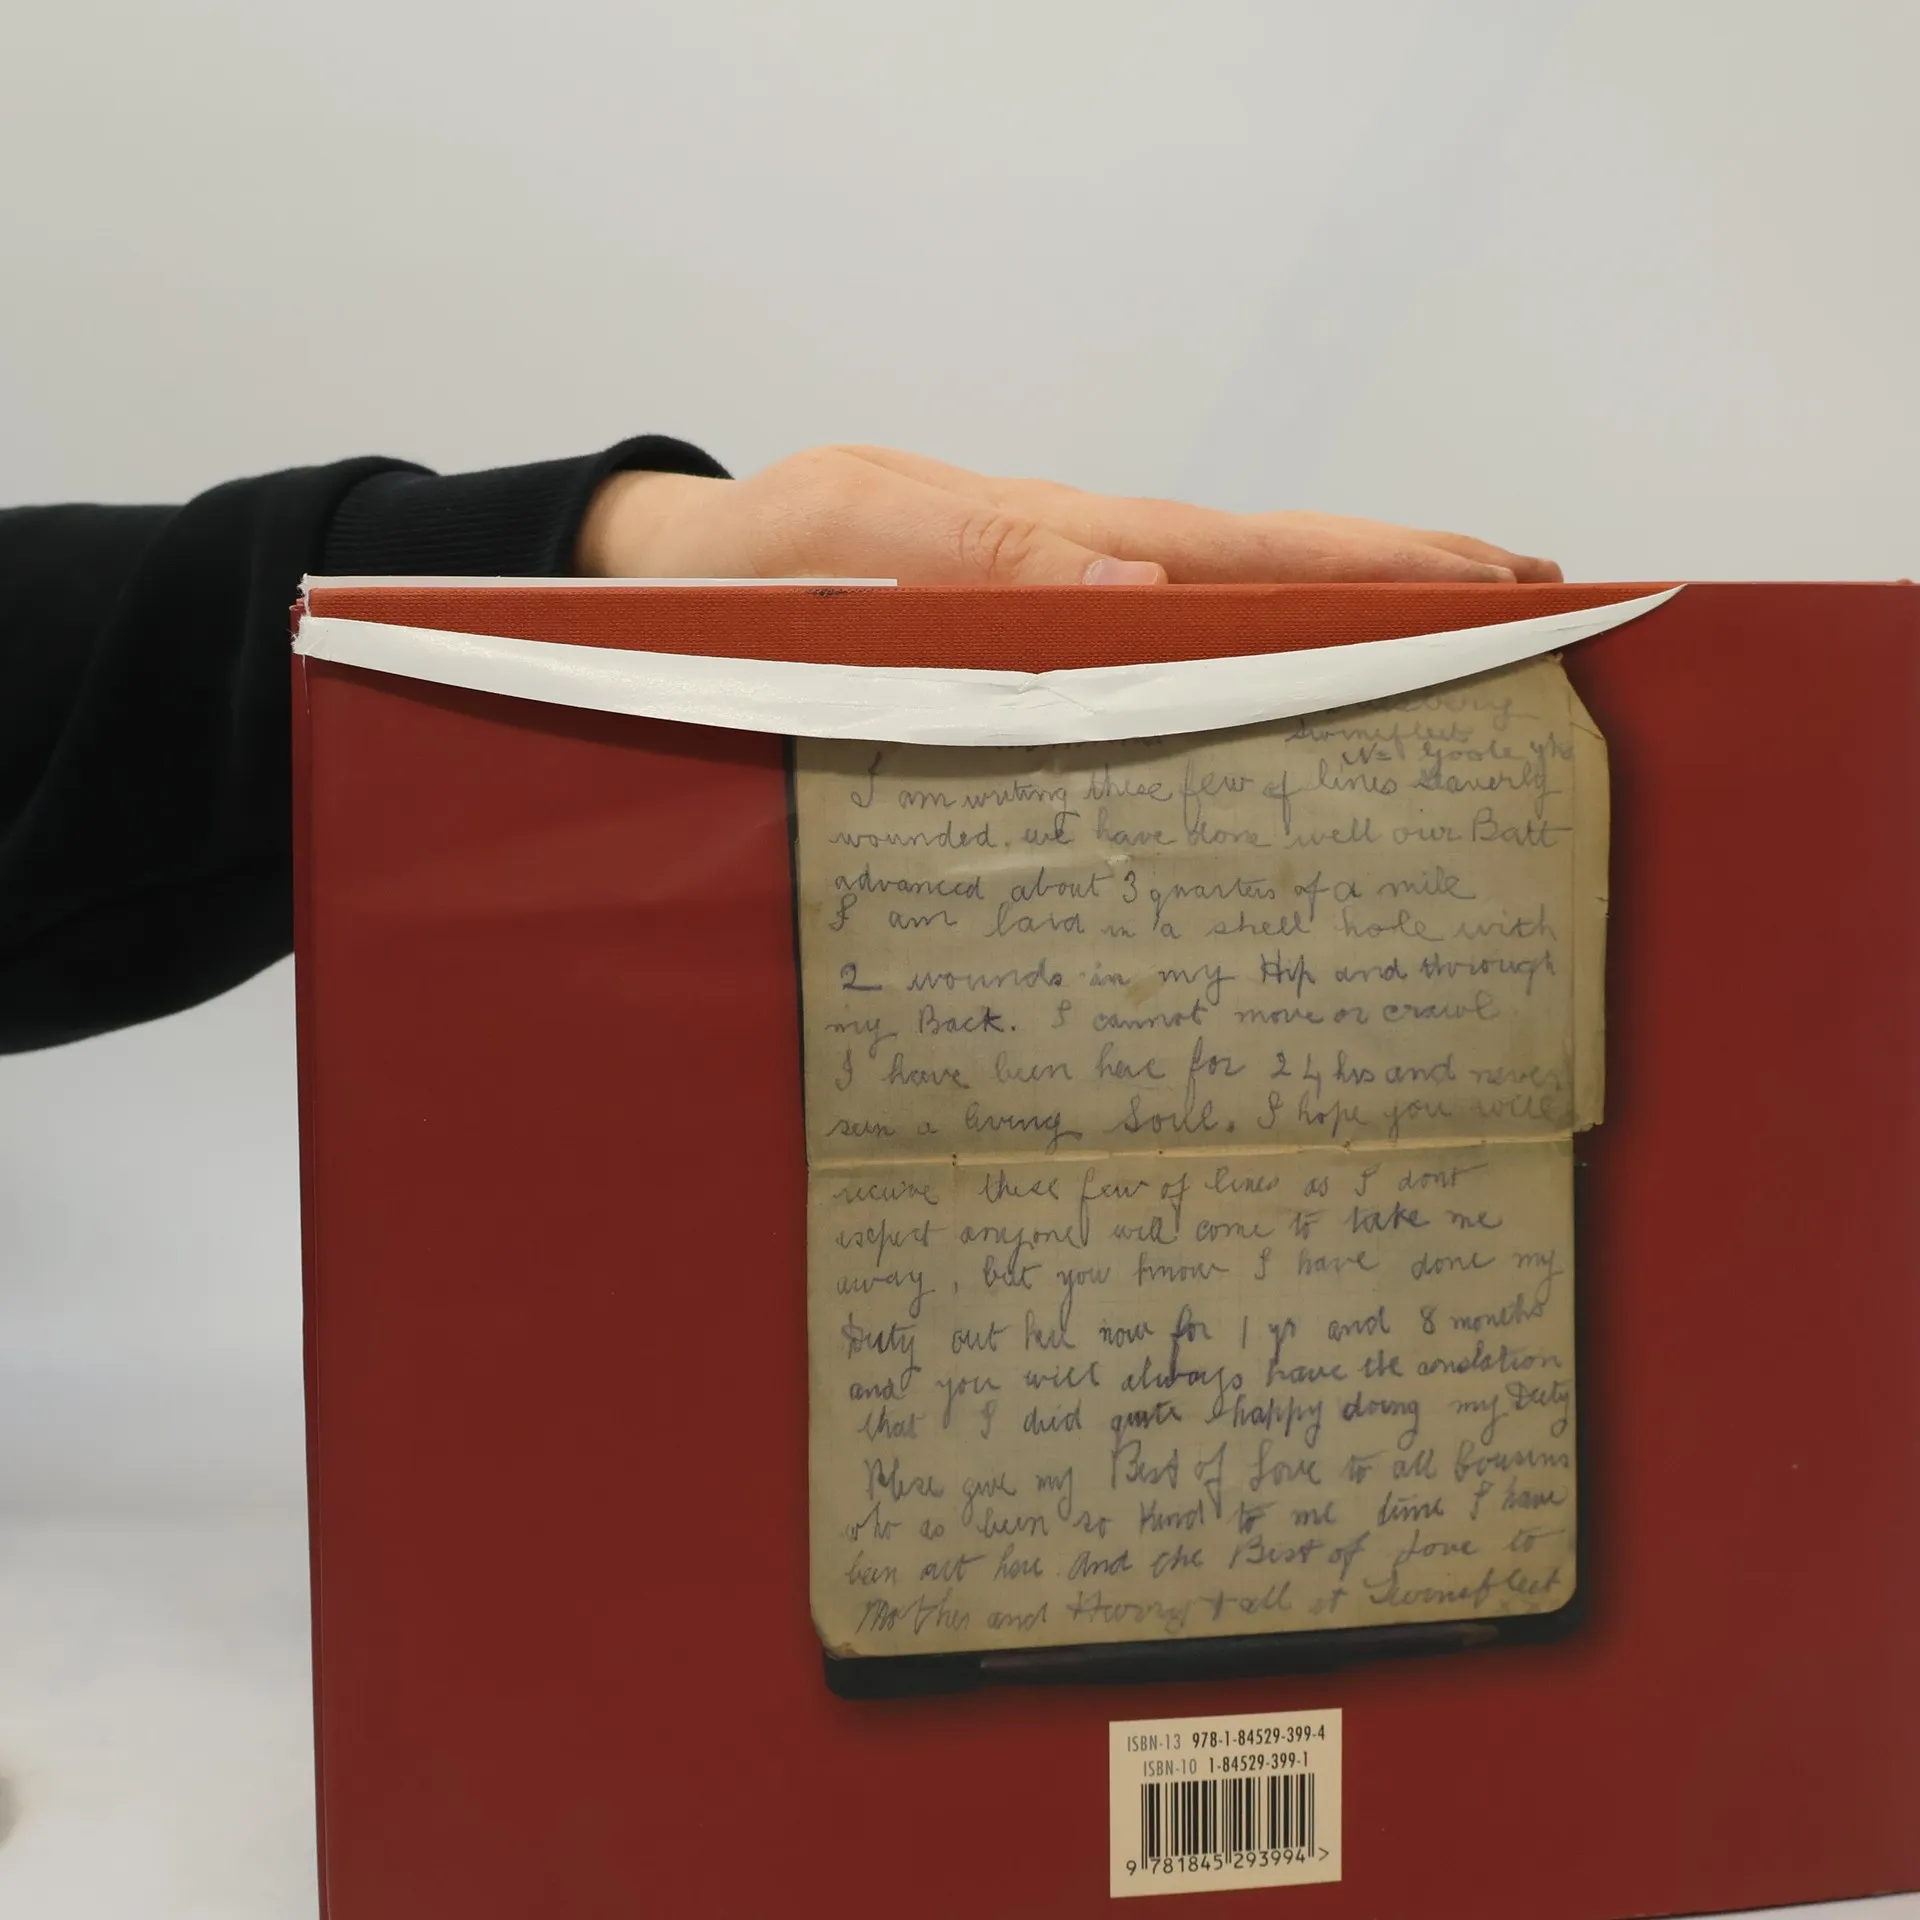 Swinefleet
Nr Goole yks
I am writing these few of lines Saverly
wounded. we have done well our Batt
advanced about 3 quarters of a mile
I am laid in a shell hole with
2 wounds in my Hip and through
my Back. I cannot move or crawl
I have been here for 24 hrs and never
seen a living Soul. I hope you will
receive these few of lines as I dont
expect anyone will come to take me
away, but you know I have done my
Duty out here now for 1 yr and 8 months
and you will always have the consolation
that I died quite happy doing my Duty
Please give my Best of Love to all Cousins
who as been so Kind to me time I have
been out here. And the Best of Love to
Mother and Harry & all at Swinefleet
ISBN-13 978-1-84529-399-4
ISBN-10 1-84529-399-1
9 781845 293994 >